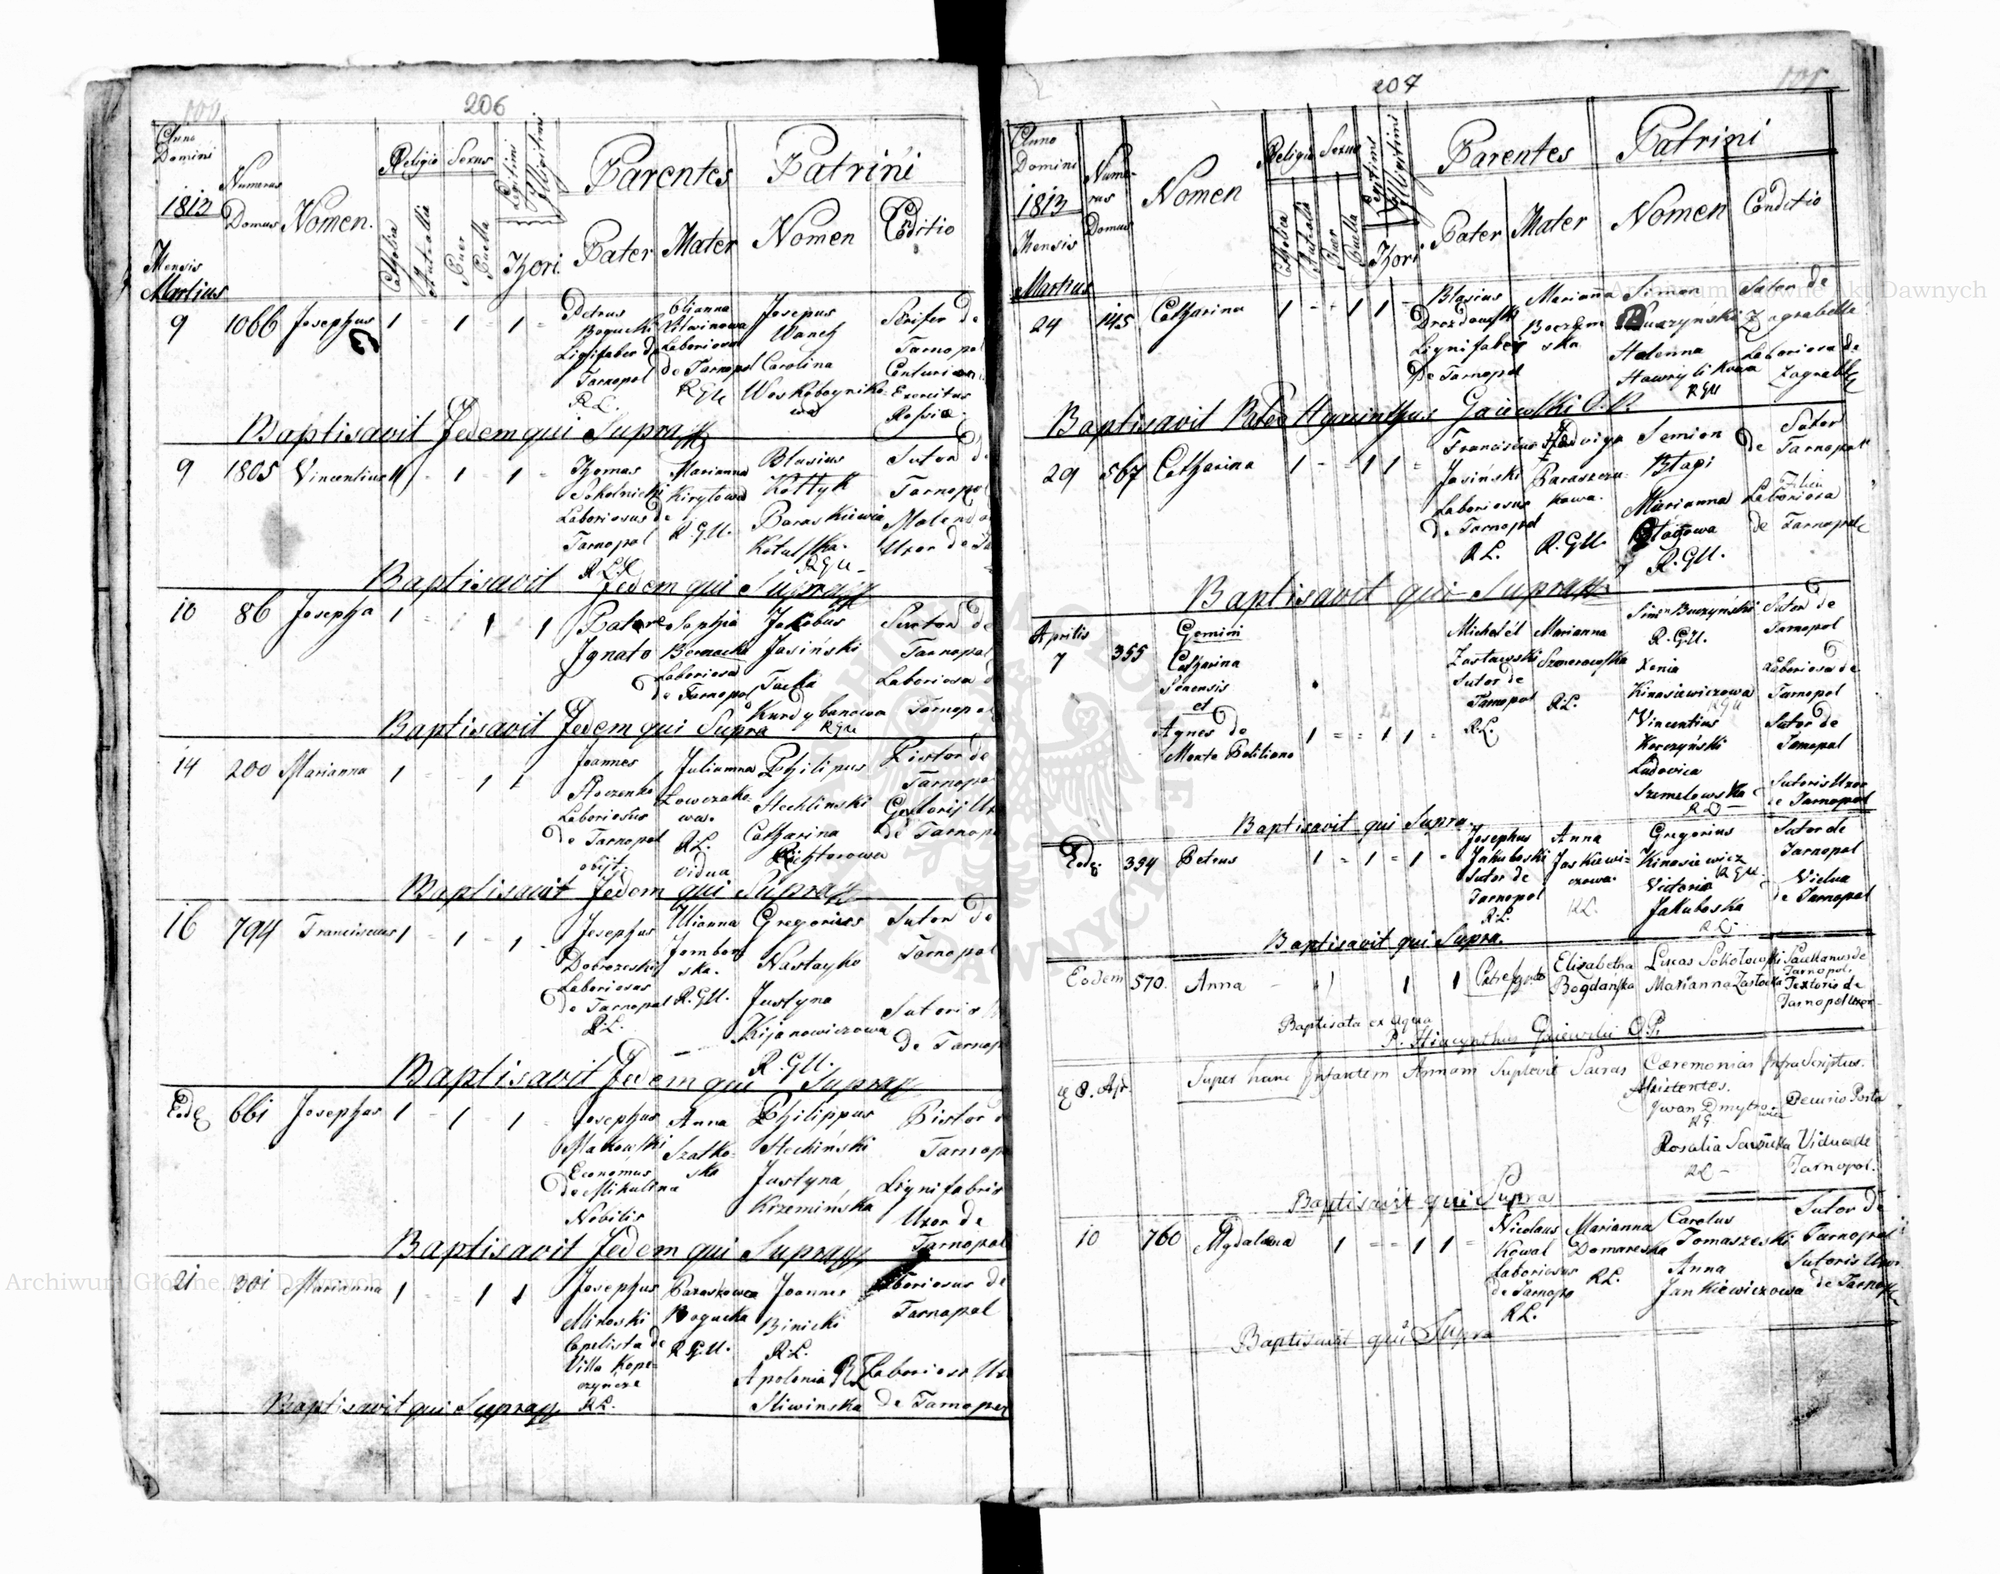 206
Anno Domini 1813 Mensis Martius
Numerus Domus
Nomen.
Religio
Catholica
Aut alia
Sexus
Puer
Puella
Legitimi
Illegitimi
Thori
Parentes
Pater
Mater
Patrini
Nomen
Conditio
9 1066 Josephus 1 - 1 - 1 -
Petrus
Bogucki
Lignifaber de
Tarnopol
R.L.
Litwinowa
Laboriosa
de Tarnopol
R.G.U.
Josepus
Wanek
Carolina
Woskoboyniko-
wa
de
Tarnopol
Centurionis
Exercitus
Baptisavit Jedem qui Supra
9 1805 Vincentius 1 - 1 - 1 -
Thomas
Sokolnicki
Laboriosus de
Tarnopol
R.L.
Marianna
Kirylowa
R.G.U.
Blasius
Kottyk
Baraskiewia
Kotulska.
R.G.U.
Sutor de
Tarnopol
Uxor de
Baptisavit Jedem qui Supra
10 86 Josepha 1 - 1 1
Patre
Ignato
Sophia
Bernacka
Laboriosa
de Tarnopol
Jakobus
Jasiński
Tacka
Kurdybanowa
R.G.U.
Tarnopol
Laboriosa
Tarnopol
Baptisavit Jedem qui Supra
14 200 Marianna 1 - - 1 1
Joannes
Laboriosus
de Tarnopol
obijt
Julianna
Lowczako-
wa.
R.L.
Vidua
Philipus
Stechlinski
Catharina
Richterowa
Pistor de
Tarnopol
de Tarnopol
Baptisavit Jedem qui Supra
16 794 Franciscus 1 - 1 - 1 -
Josephus
Dobrozeski
Laboriosus
de Tarnopol
R.L.
Ulianna
Jombor
ska.
R.G.U.
Gregorius
Nastayko
Justyna
Kijanowiczowa
R.G.U.
Sutor de
Tarnopol
Sutoris
de Tarnop
Baptisavit Jedem qui Supra
Ede 661 Josephus 1 - 1 - 1 -
Josephus
Makowski
Economus
de Mikulina
Nobilis
Anna
Szatko-
ska
Philippus
Stechiński
Justyna
Krzemińska
Pistor
Tarnop
Lignifabris
Uxor de
Tarnopol
Baptisavit Jedem qui Supra
21 301 Marianna 1 - - 1 1
Josephus
Miroski
Capelista de
Villa Kope-
czyńce
R.L.
Paraskowia
Bogucka
R.G.U.
Joannes
Binicki
R.L.
Apolonia R.L.
Sliwinska
Laboriosus de
Tarnopol
de Tarnopol
Baptisavit qui Supra
207
Anno Domini 1813 Mensis Martius
Nume-
rus
Domus
Nomen
Religio
Catholica
Aut alia
Sexus
Puer
Puella
Legitimi
Illegitimi
Thori
Parentes
Pater
Mater
Patrini
Nomen
Conditio
24 145 Catharina 1 - - 1 1 -
Blasius
Drozdowski
Lignifaber
de Tarnopol
Marianna
Simon
Buczyński
Halenna
Hawrylikowa
R.G.U.
Sutor de
Zagrabelle
Laboriosa de
Zagrabelle
Baptisavit Pater Hyacinthus Gaiewski O.P.
29 567 Catharina 1 - - 1 1 -
Franciscus
Jasiński
Laboriosus
de Tarnopol
R.L.
Hedviga
Paraszczu-
kowa.
R.G.U.
Semion
Błagi
Marianna
Błagowa
R.G.U.
Sutor
de Tarnopol
Filia
Laboriosa
de Tarnopol
Baptisavit qui Supra
Aprilis
7 355
Gemini
Catharina
Senensis
et
Agnes de
Monte Politiano 1 - - 1 1 -
Michael
Zastawski
Sutor de
Tarnopol
R.L.
Marianna
Szmorowska
R.L.
Simn Buczyński
R.G.U.
Xenia
Kinasiewiczowa
R.G.U.
Vincentius
Korczyński
Ludovica
Szmelowska
R.L.
Sutor de
Tarnopol
Laboriosa de
Tarnopol
Sutor de
Tarnopol
Sutoris Uxor
de Tarnopol
Baptisavit qui Supra.
Ede 394 Petrus 1 - 1 - 1 -
Josephus
Jakuboski
Sutor de
Tarnopol
R.L.
Anna
Jaskiewi-
czowa.
R.L.
Gregorius
Kinasiewicz
R.G.U.
Victoria
Jakuboska
R.L.
Sutor de
Tarnopol
Vidua
de Tarnopol
Baptisavit qui Supra.
Eodem 570. Anna - 1 1 1
Elizabetha
Bogdańska
Lucas Sokołowski
Marianna Zastocka
Tarnopol,
Textoris de
Tarnopol Uxor
Baptisata ex aqua
P. Hiacynthus Gaiewski O.P.
8. Apr. Super hanc Infantem Annam Suplevit Sacras Caeremonias Infra Scriptus.
Assistentes.
Iwan Dmytrowicz
R.G.
Rosalia
R.L.
Vidua de
Tarnopol.
Baptisavit qui Supra
10 760 Magdalena 1 - - 1 1 -
Nicolaus
Kowal
Laboriosus
de Tarnopo
R.L.
Marianna
Domareska
R.L.
Carolus
Tomaszeski
Anna
Jankiewiczowa
Sutor de
Tarnopol
Sutoris Uxor
de Tarnopol
Baptisavit qui Supra
Archiwum Główne Akt Dawnych
Archiwum Główne Akt Dawnych